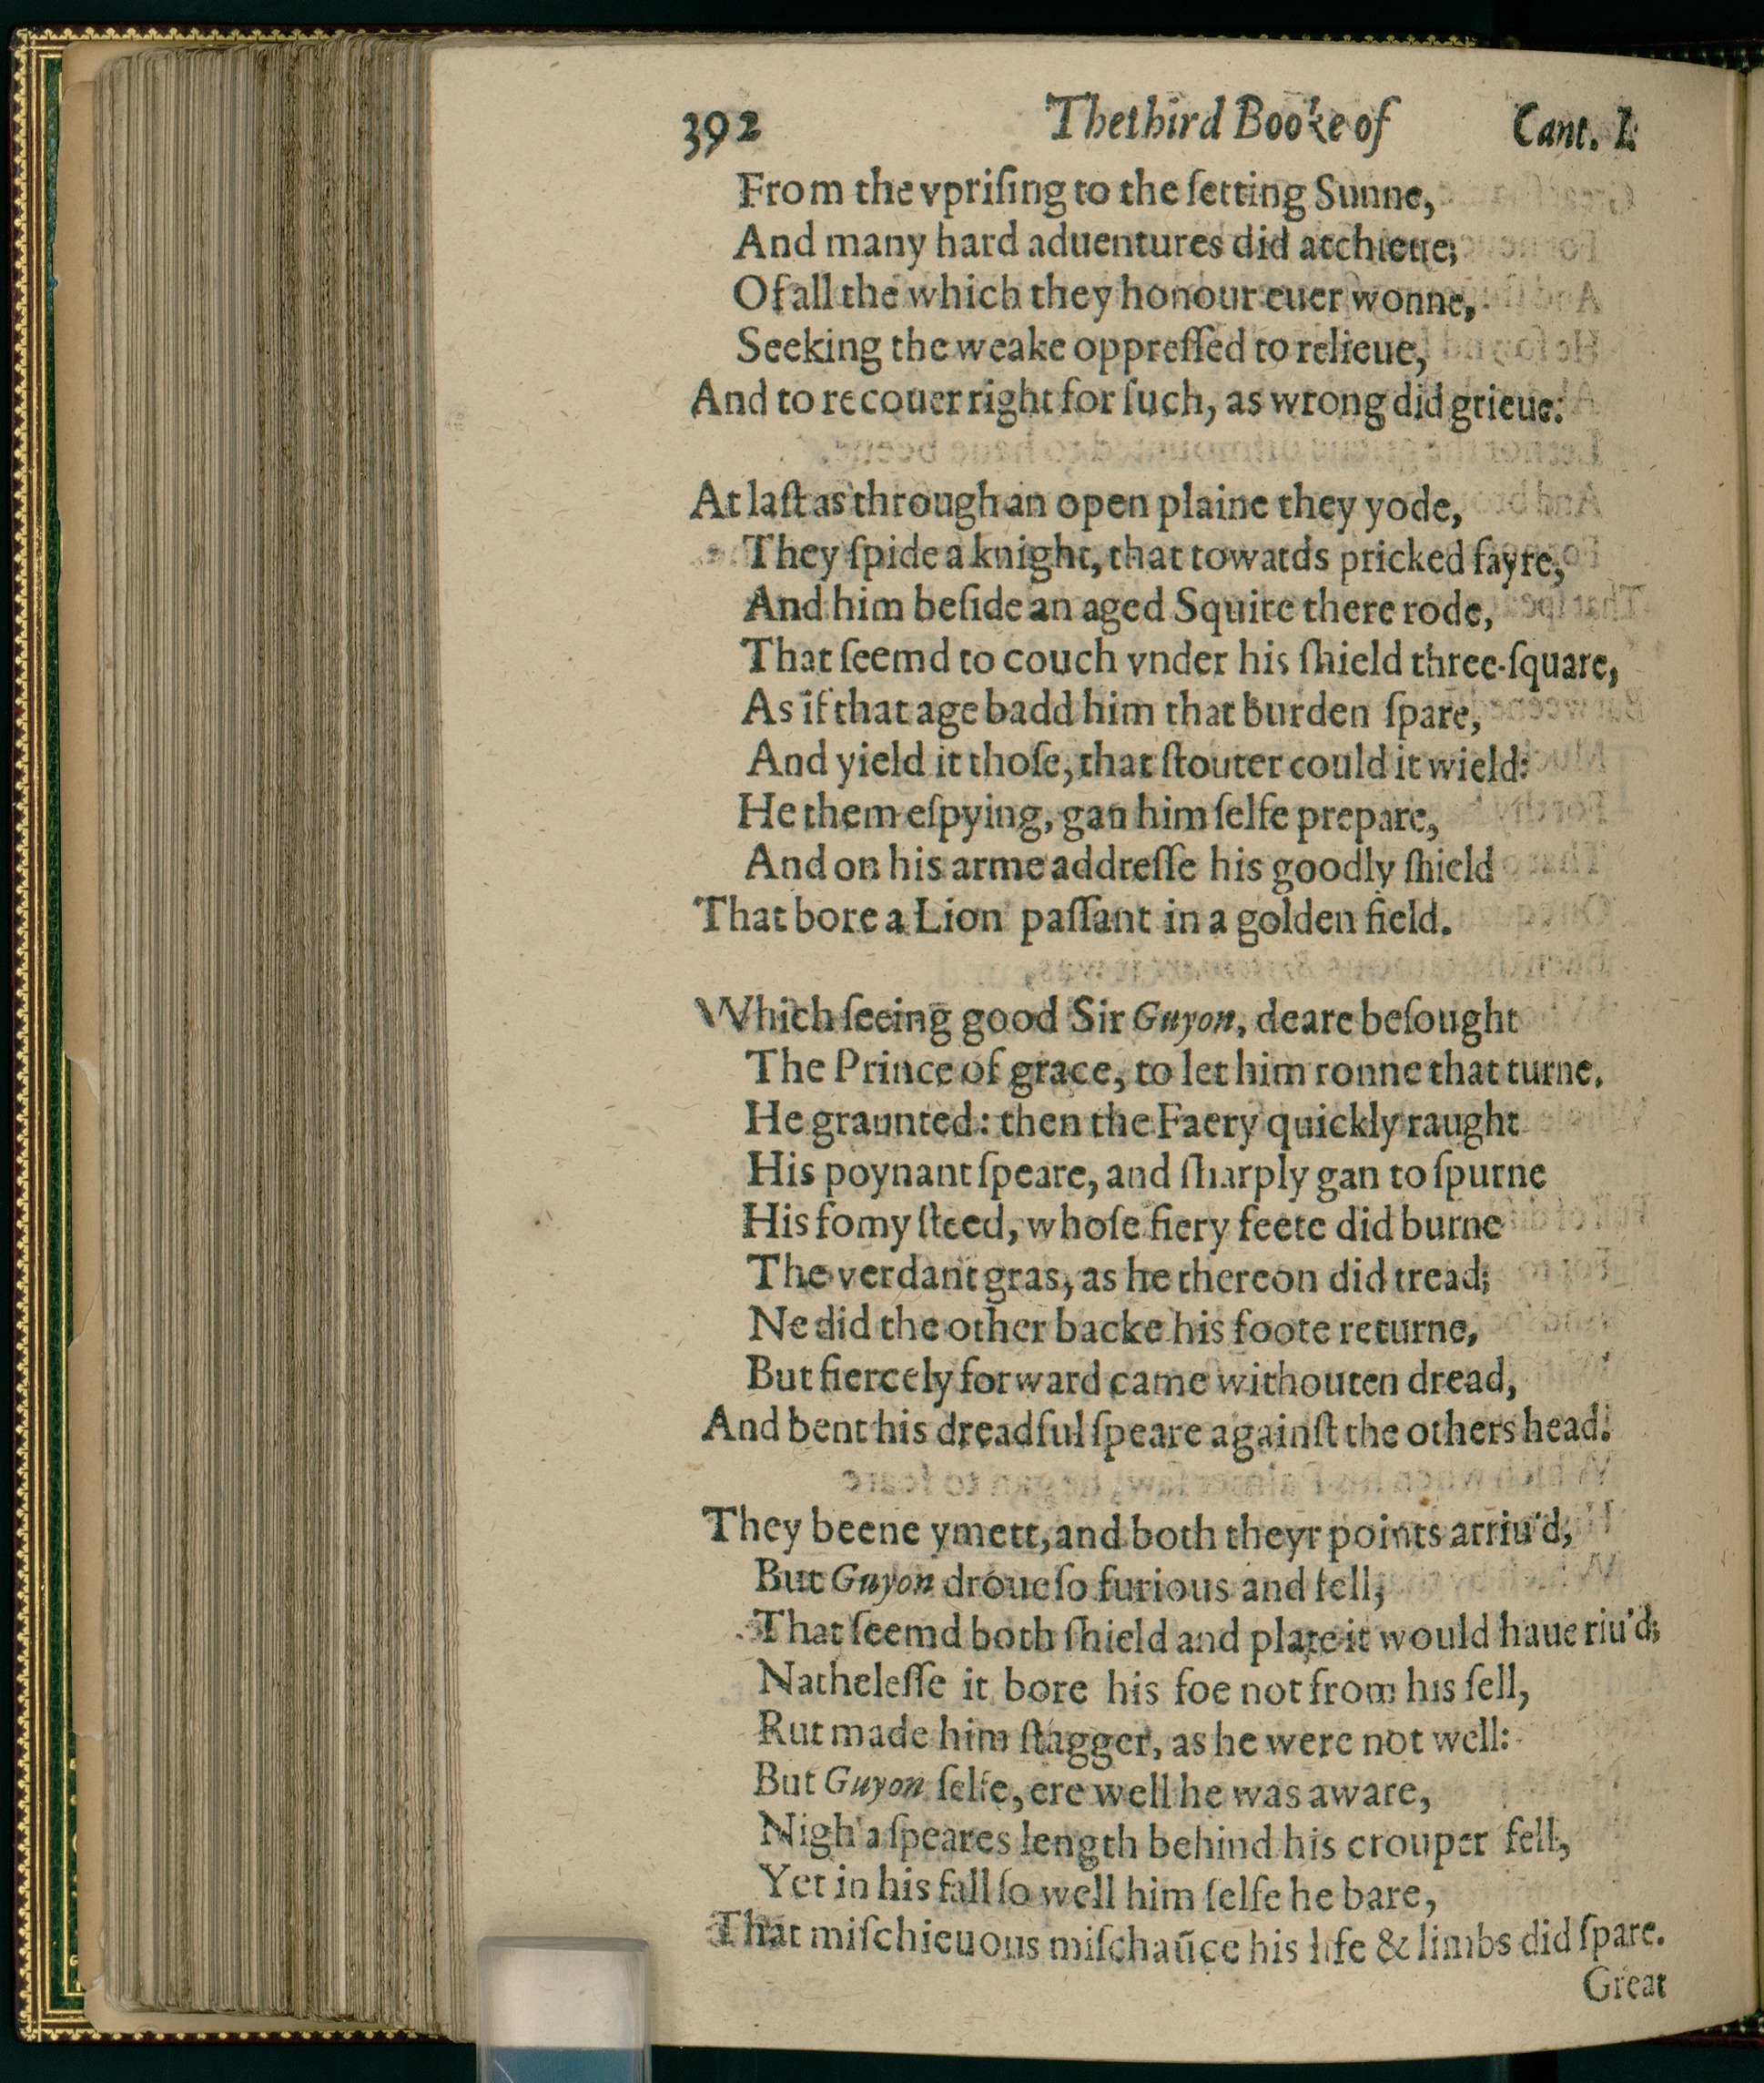 392 The third Booke of Cant. I.
From the vpriſing to the ſetting Sunne,
And many hard aduentures did atchieue;
Of all the which they honour euer wonne,
Seeking the weake oppreſſed to relieue,
And to recouer right for ſuch, as wrong did grieue.
At laſt as through an open plaine they yode,
They ſpide a knight, that towards pricked fayre,
And him beſide an aged Squire there rode,
That ſeemd to couch vnder his ſhield three-ſquare,
As if that age badd him that burden ſpare,
And yield it thoſe, that ſtouter could it wield:
He them eſpying, gan him ſelfe prepare,
And on his arme addreſſe his goodly ſhield
That bore a Lion paſſant in a golden field.
Which ſeeing good Sir Guyon, deare beſought
The Prince of grace, to let him ronne that turne.
He graunted: then the Faery quickly raught
His poynant ſpeare, and ſharply gan to ſpurne
His fomy ſteed, whoſe fiery feete did burne
The verdant gras, as he thereon did tread;
Ne did the other backe his foote returne,
But fiercely forward came withouten dread,
And bent his dreadful ſpeare againſt the others head.
They beene ymett, and both theyr points arriu'd,
But Guyon droue ſo furious and fell,
That ſeemd both ſhield and plate it would haue riu'd;
Natheleſſe it bore his foe not from his ſell,
Rut made him ſtagger, as he were not well:
But Guyon ſelfe, ere well he was aware,
Nigh a ſpeares length behind his crouper fell,
Yet in his fall ſo well him ſelfe he bare,
That miſchieuous miſchaũce his life & limbs did ſpare.
Great